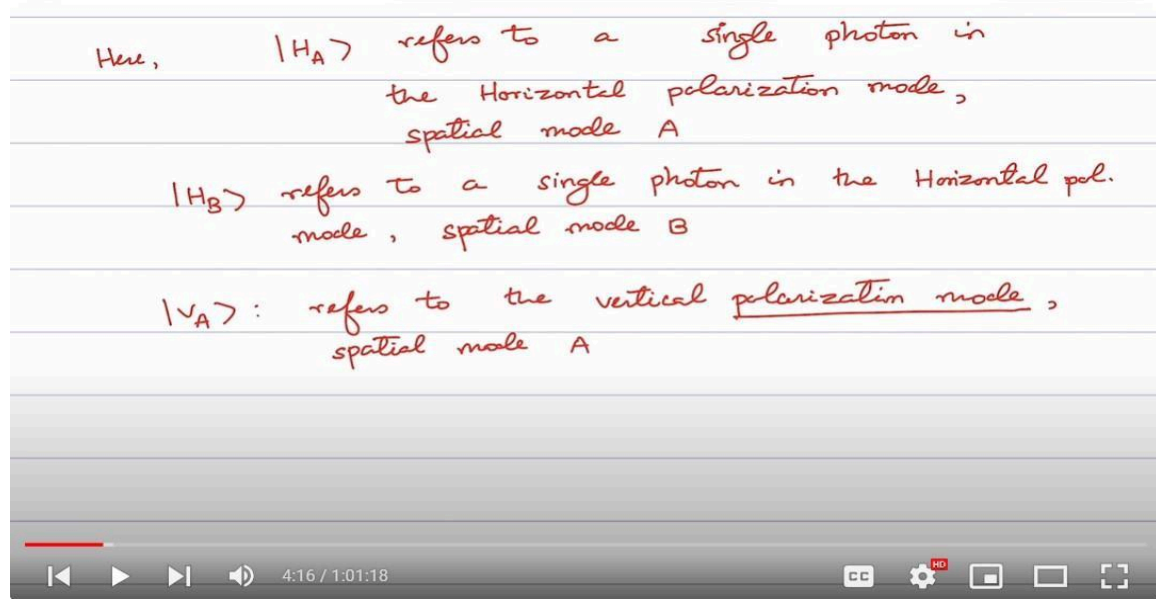 Here, |H_A> refers to a single photon in
the Horizontal polarization mode,
spatial mode A
|H_B> refers to a single photon in the Horizontal pol.
mode, spatial mode B
|V_A> : refers to the vertical polarization mode,
spatial mode A
4:16 / 1:01:18 CC HD